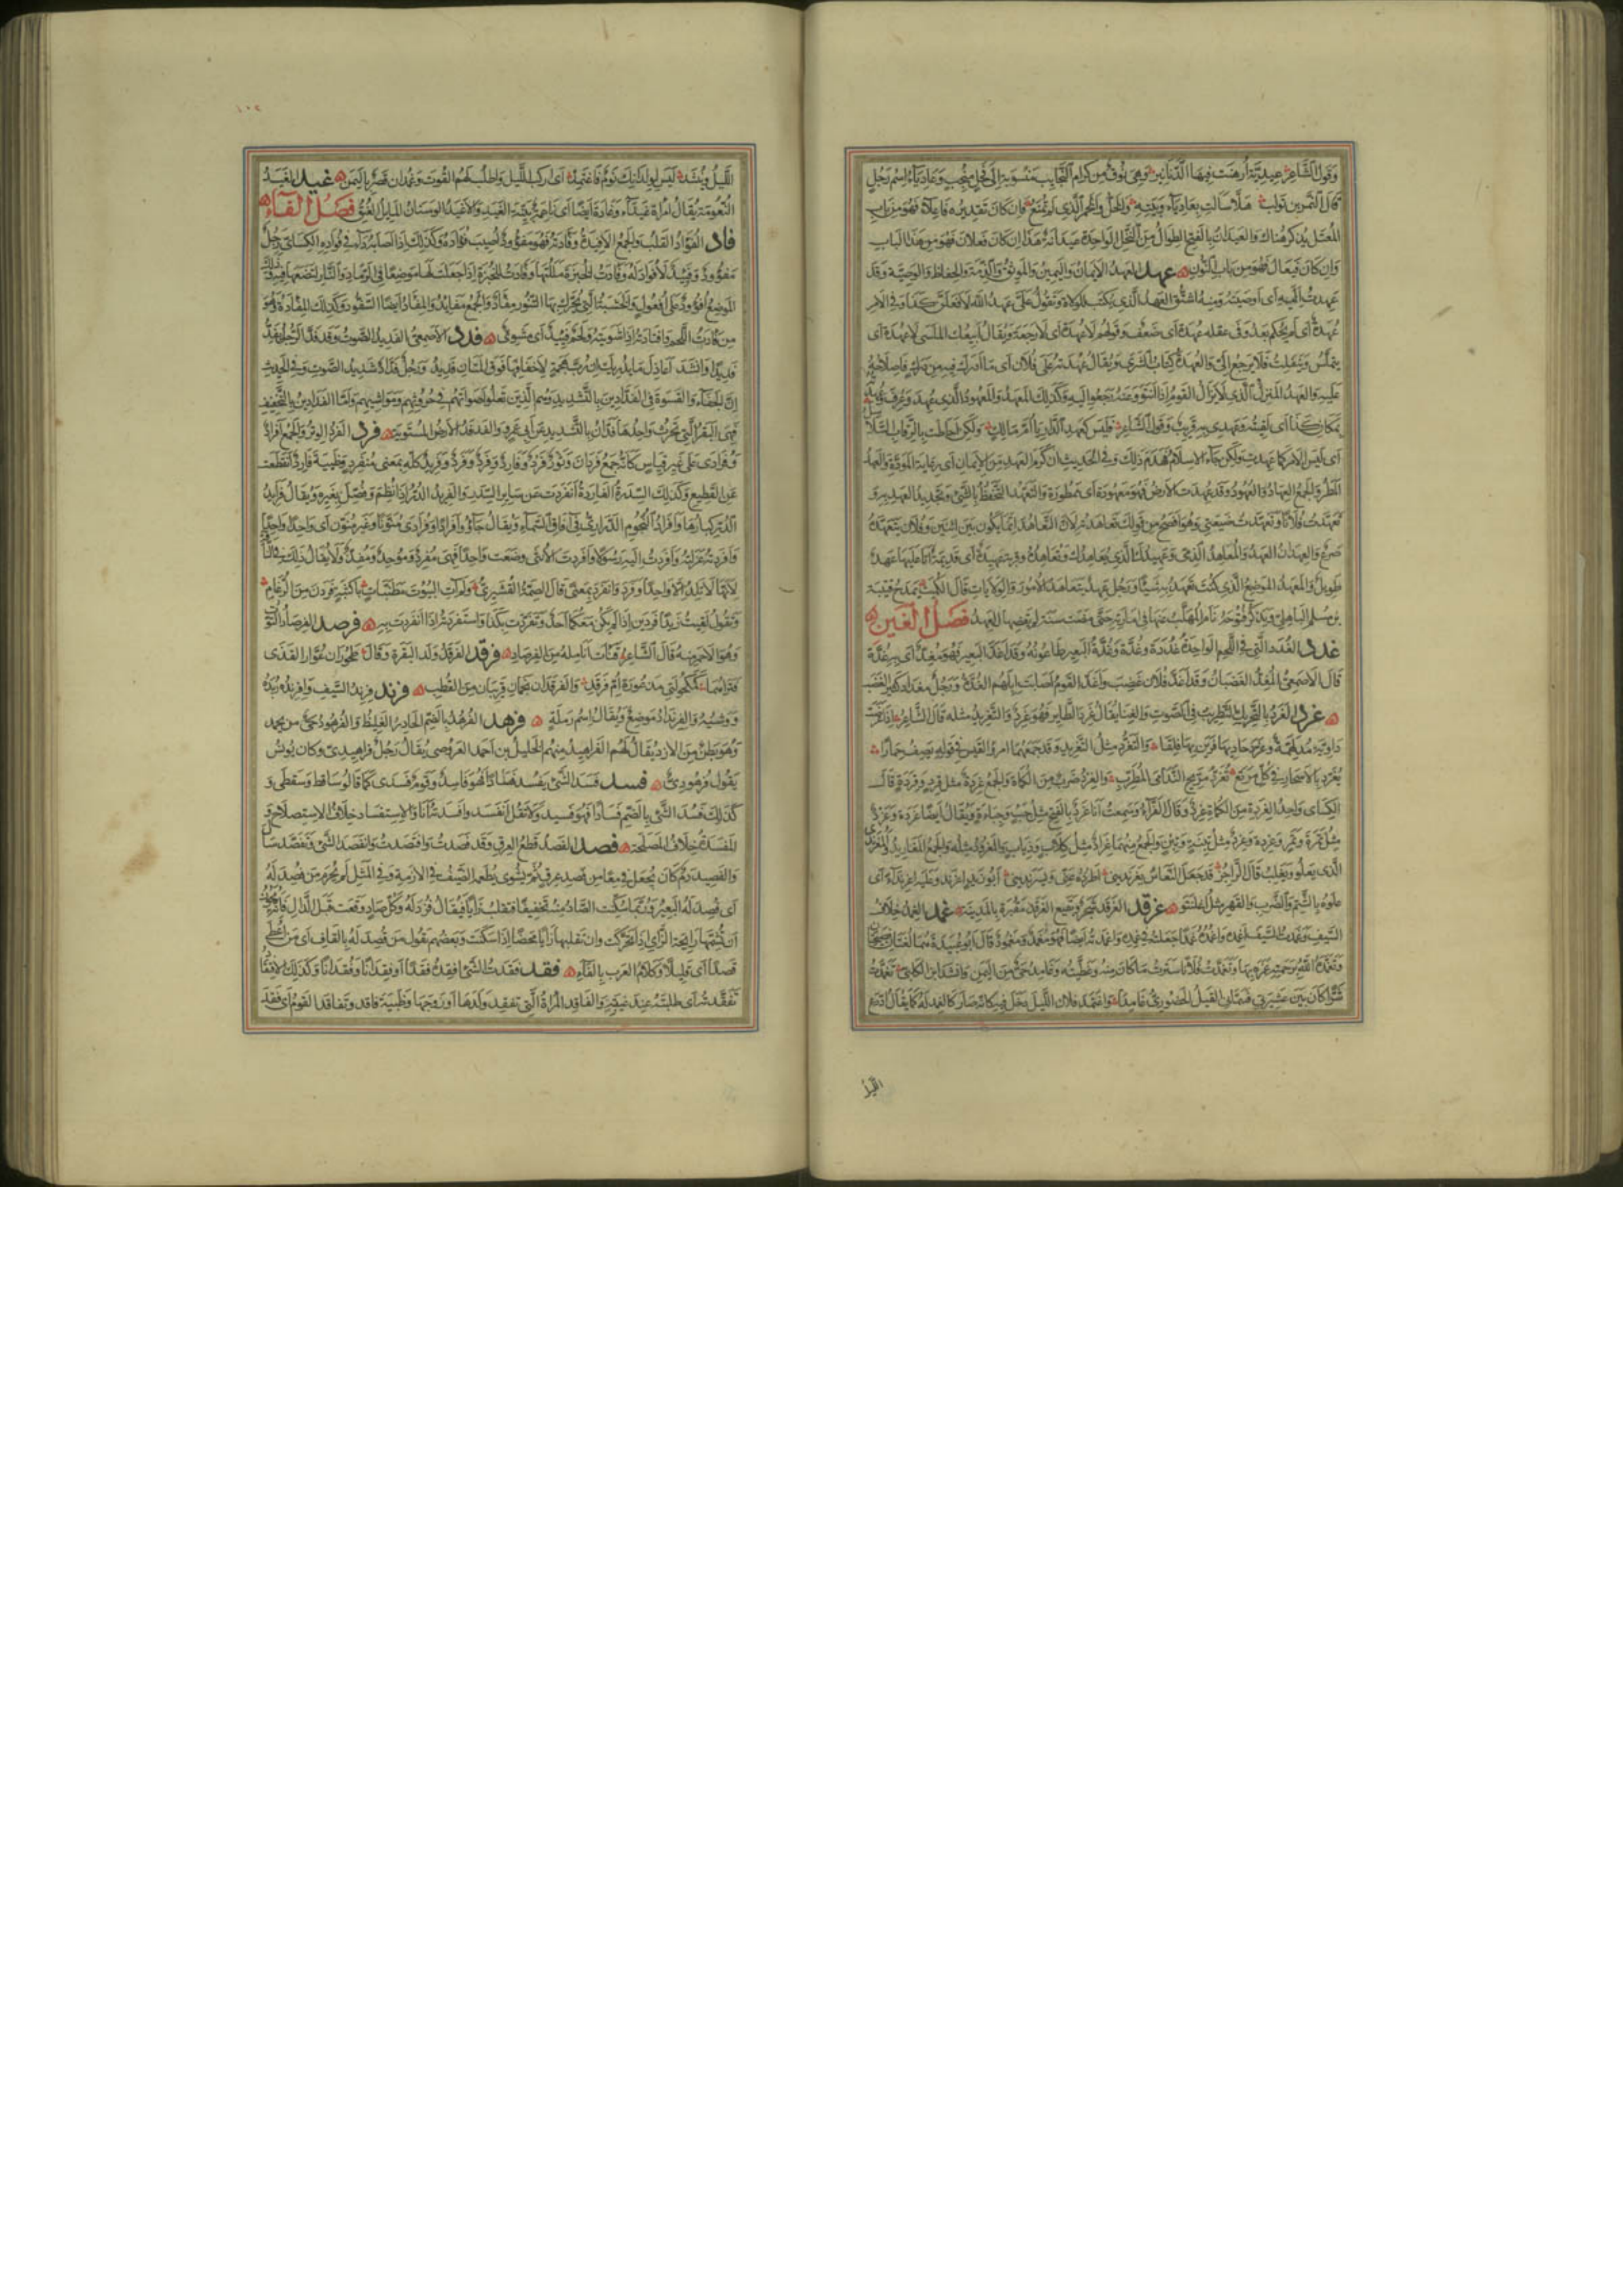 وقول الشاعر عيدية أرهنت فيها الدنانير وهى نوق من كرام النجايب منسوبة إلى فحل منجب وعادياء اسم رجل
قال النمر بن تولب هلا سالت بعادياء وبيته والخل والخمر الذى لم تمنع فان كان تقديره فاعلاء فهو من باب
المعتل يذكر هناك والعيدان بالفتح الطوال من النخل الواحدة عيدانة هذا ان كان فعلان فهو من هذا الباب
وإن كان فيعال فهو من باب النون عهد العهد الأيمان واليمين والموثق والذمة والحفاظ والوصية وقد
عهدت إليه أى أوصيته ومنه اشتق العهد الذى يكتب للولاة وتقول على عهد الله لأفعلن كذا وفى الأمر
عهدة أى لم يحكم بعد وفى عقله عهدة أى ضعف وقولهم لا عهدة أى لا رجعة ويقال أبيعك الملسى لا عهدة أى
يتملس وينفلت فلا يرجع إلى والعهدة كتاب الشرى ويقال عهدته على فلان أى ما أدرك فيه من درك فاصلاحه
عليه والعهد المنزل الذى لا يزال القوم إذا انتووا عنه رجعوا إليه وكذلك المعهد والمعهود الذى عهد وعرف
بمكان كذا أى لقيته وعهدى به قريب وقول الشاعر فليس كعهد الدار يا أم مالك ولكن أحاطت بالرقاب السلاسل
أى ليس الأمر كما عهدت ولكن جاء الاسلام فهدم ذلك وفى الحديث ان كرم العهد من الايمان أى رعاية المودة والعهد
المطر والجمع العهاد والعهود وقد عهدت الأرض فهى معهودة أى ممطورة والتعهد التحفظ بالشى وتجديد العهد به و
تعهدت فلانا وتعهدت ضيعتى وهو أفصح من قولك تعاهدته لان التعاهد انما يكون بين اثنين وفلان يتعهده
صرع والعهدان العهد والمعاهد الذمى وعهيدك الذى يعاهدك وتعاهده وقرية عهيدة أى قديمة أتى عليها عهد
طويل والمعهد الموضع الذى كنت تعهد به شيئا ورجل عهد يتعاهد الأمور والولايات قال الكميت يمدح قتيبة
بن مسلم الباهلى ويذكر فتوحه نام المهلب عنها فى امارته حتى مضت سنة لم يقضها العهد فصل الغين
غدد الغدد التى فى اللحم الواحدة غددة وغدة وغدة البعير طاعونه وقد أغد البعير فهو مغد أى به غدة
قال الاصمعى المغد الغضبان وقد أغد فلان غضب وأغد القوم أصابت إبلهم الغدة ورجل مغداد كثير الغضب
غرد الغرد بالتحريك التطريب فى الصوت والغناء يقال غرد الطاير فهو غرد والتغريد مثله قال الشاعر
داوية مدلهمة وغرد حاديها فرين بها فلقا والتغرد مثل التغريد وقد جمعهما امرؤ القيس فى قوله يصف حمارا
يغرد بالأسحار فى كل مرتع تغرد مريح الندامى المطرب والغرد ضرب من الكماة والجمع غردة مثل قرد وقردة قال
الكساى واحد الغردة من الكماة غرد وقال الفراء وسمعت أنا غرد بالفتح مثل جبء وجباءة ويقال أيضا غردة وغرد
مثل تمرة وتمر وغردة وغرد مثل تبنة وتبن والجمع منهما غراد مثل كلاب وذياب والمغرود مثله والجمع المغاريد والمغرندى
الذى يعلو ويغلب قال الراجز قد جعل النعاس يغرندينى أطرده عنى ويسرندينى أبو زيد اغرندوا عليه اغرنداء أى
علوه بالشتم والضرب والقهر مثل اغلنتوا غرقد الغرقد شجر وبقيع الغرقد مقبرة بالمدينة غمد الغمد غلاف
السيف وغمدت السيف أغمده وأغمده غمدا جعلته فى غمده وأغمدته أيضا فهو مغمد ومغمود قال أبو عبيدة هما لغتان فصيحتان
وتغمده الله برحمته غمره بها وتغمدت فلانا سترت ما كان منه وغطيته وغامد حى من اليمن وانشد ابن الكلبى تغمدت
شرا كان بين عشيرتى فسمانى القيل الحضورى غامدا واغتمد فلان الليل دخل فيه كانه صار كالغمد له كما يقال ادرع
الليل
١٠٢
الليل وينشد ليس لولدانك نوم فاغتمد أى اركب الليل واطلب لهم القوت وغمدان قصر باليمن غيد الغيد
النعومة يقال امراة غيداء وغادة ايضا أى ناعمة بينة الغيد والاغيد الوسنان المايل العنق فصل الفاء
فاد الفؤاد القلب والجمع الأفيدة وفادته فهو مفؤود أصبت فؤاده وكذلك اذا أصابه داء فى فؤاده الكساى رجل
مفؤود وفييد لا فؤاد له وفادت الخبزة مللتها وفادت للخبزة إذا جعلت لها موضعا فى الرماد والنار لتضعها فيه وذلك
الموضع أفؤود على أفعول والخشبة التى يحرك بها التنور مفاد والجمع مفايد والمفاد أيضا السفود وكذلك المفادة وهو
من فادت اللحم وافتادته إذا شويته ولحم فييد أى مشوى فدد الاصمعى الفديد الصوت وقد فد الرجل يفد
فديدا وانشد أعاذل ما يدريك ان رب هجمة لأخفافها فوق المتان فديد ورجل فداد شديد الصوت وفى الحديث
إن الجفاء والقسوة فى الفدادين بالتشديد وهم الذين تعلو أصواتهم فى حروثهم ومواشيهم وأما الفدادين بالتخفيف
فهى البقر التى تحرث واحدها فدان بالتشديد عن أبى عمرو والفدفد الأرض المستوية فرد الفرد الوتر والجمع أفراد
وفرادى على غير قياس كانه جمع فردان وثور فرد وفارد وفرد وفرد وفريد كله بمعنى منفرد وظبية فارد انقطعت
عن القطيع وكذلك السدرة الفاردة انفردت عن ساير السدر والفريد الدر إذا نظم وفصل بغيره ويقال فرايد
الدر كبارها وأفراد النجوم الدرارى فى آفاق السماء ويقال جاؤا أفرادا وفرادى منونا وغير منون أى واحدا واحدا
وأفردته عزلته وأفردت إليه رسولا وأفردت الأنثى وضعت واحدا فهى مفرد وموحد ومفذ ولا يقال ذلك فى الناقة
لأنها لا تلد إلا واحدا وفرد وانفرد بمعنى قال الصمة القشيرى ولم آت البيوت مطنبات باكثبة فردن من الرغام
وتقول لقيت زيدا فردين إذا لم يكن معكما أحد وتفردت بكذا واستفردته إذا انفردت به فرصد الفرصاد التوت
وهو الأحمر منه قال الشاعر قنات أنامله من الفرصاد فرقد الفرقد ولد البقرة وقال طحوران عوار القذى
فتراهما كمكحولتى مذعورة أم فرقد والفرقدان نجمان قريبان من القطب فرند فرند السيف وإفرنده ربده
ووشيه والفرنداد موضع ويقال اسم رملة فرهد الفرهد بالضم الحادر الغليظ والفرهود حى من يحمد
وهو بطن من الازد يقال لهم الفراهيد منهم الخليل بن أحمد العروضى يقال رجل فراهيدى وكان يونس
يقول فرهودى فسد فسد الشى يفسد فسادا فهو فاسد وقوم فسدى كما قالوا ساقط وسقطى و
كذلك فسد الشى بالضم فسادا فهو فسيد ولا تقل انفسد وافسدته أنا والاستفساد خلاف الاستصلاح و
المفسدة خلاف المصلحة فصد الفصد قطع العرق وقد فصدت وافتصدت وانفصد الشى وتفصد سال
والفصيد دم كان يجعل فى معا من فصد عرق ثم يشوى يطعم الضيف فى الأزمة وفى المثل لم يحرم من فصد له
أى فصد له البعير وربما سكنت الصاد منه تخفيفا فتقلب زايا فيقال فزد له وكل صاد وقعت قبل الدال فانه يجوز
أن تشمها رايحة الزاى إذا تحركت وان تقلبها زايا محضا إذا سكنت وبعضهم يقول من قصد له بالقاف أى من أعطى
قصدا أى قليلا وكلام العرب بالفاء فقد فقدت الشى أفقده فقدا وفقدانا وفقدانا وكذلك الافتقاد
تفقدته أى طلبته عند غيبته والفاقد المراة التى تفقد ولدها أو زوجها وظبية فاقد وتفاقد القوم أى فقد